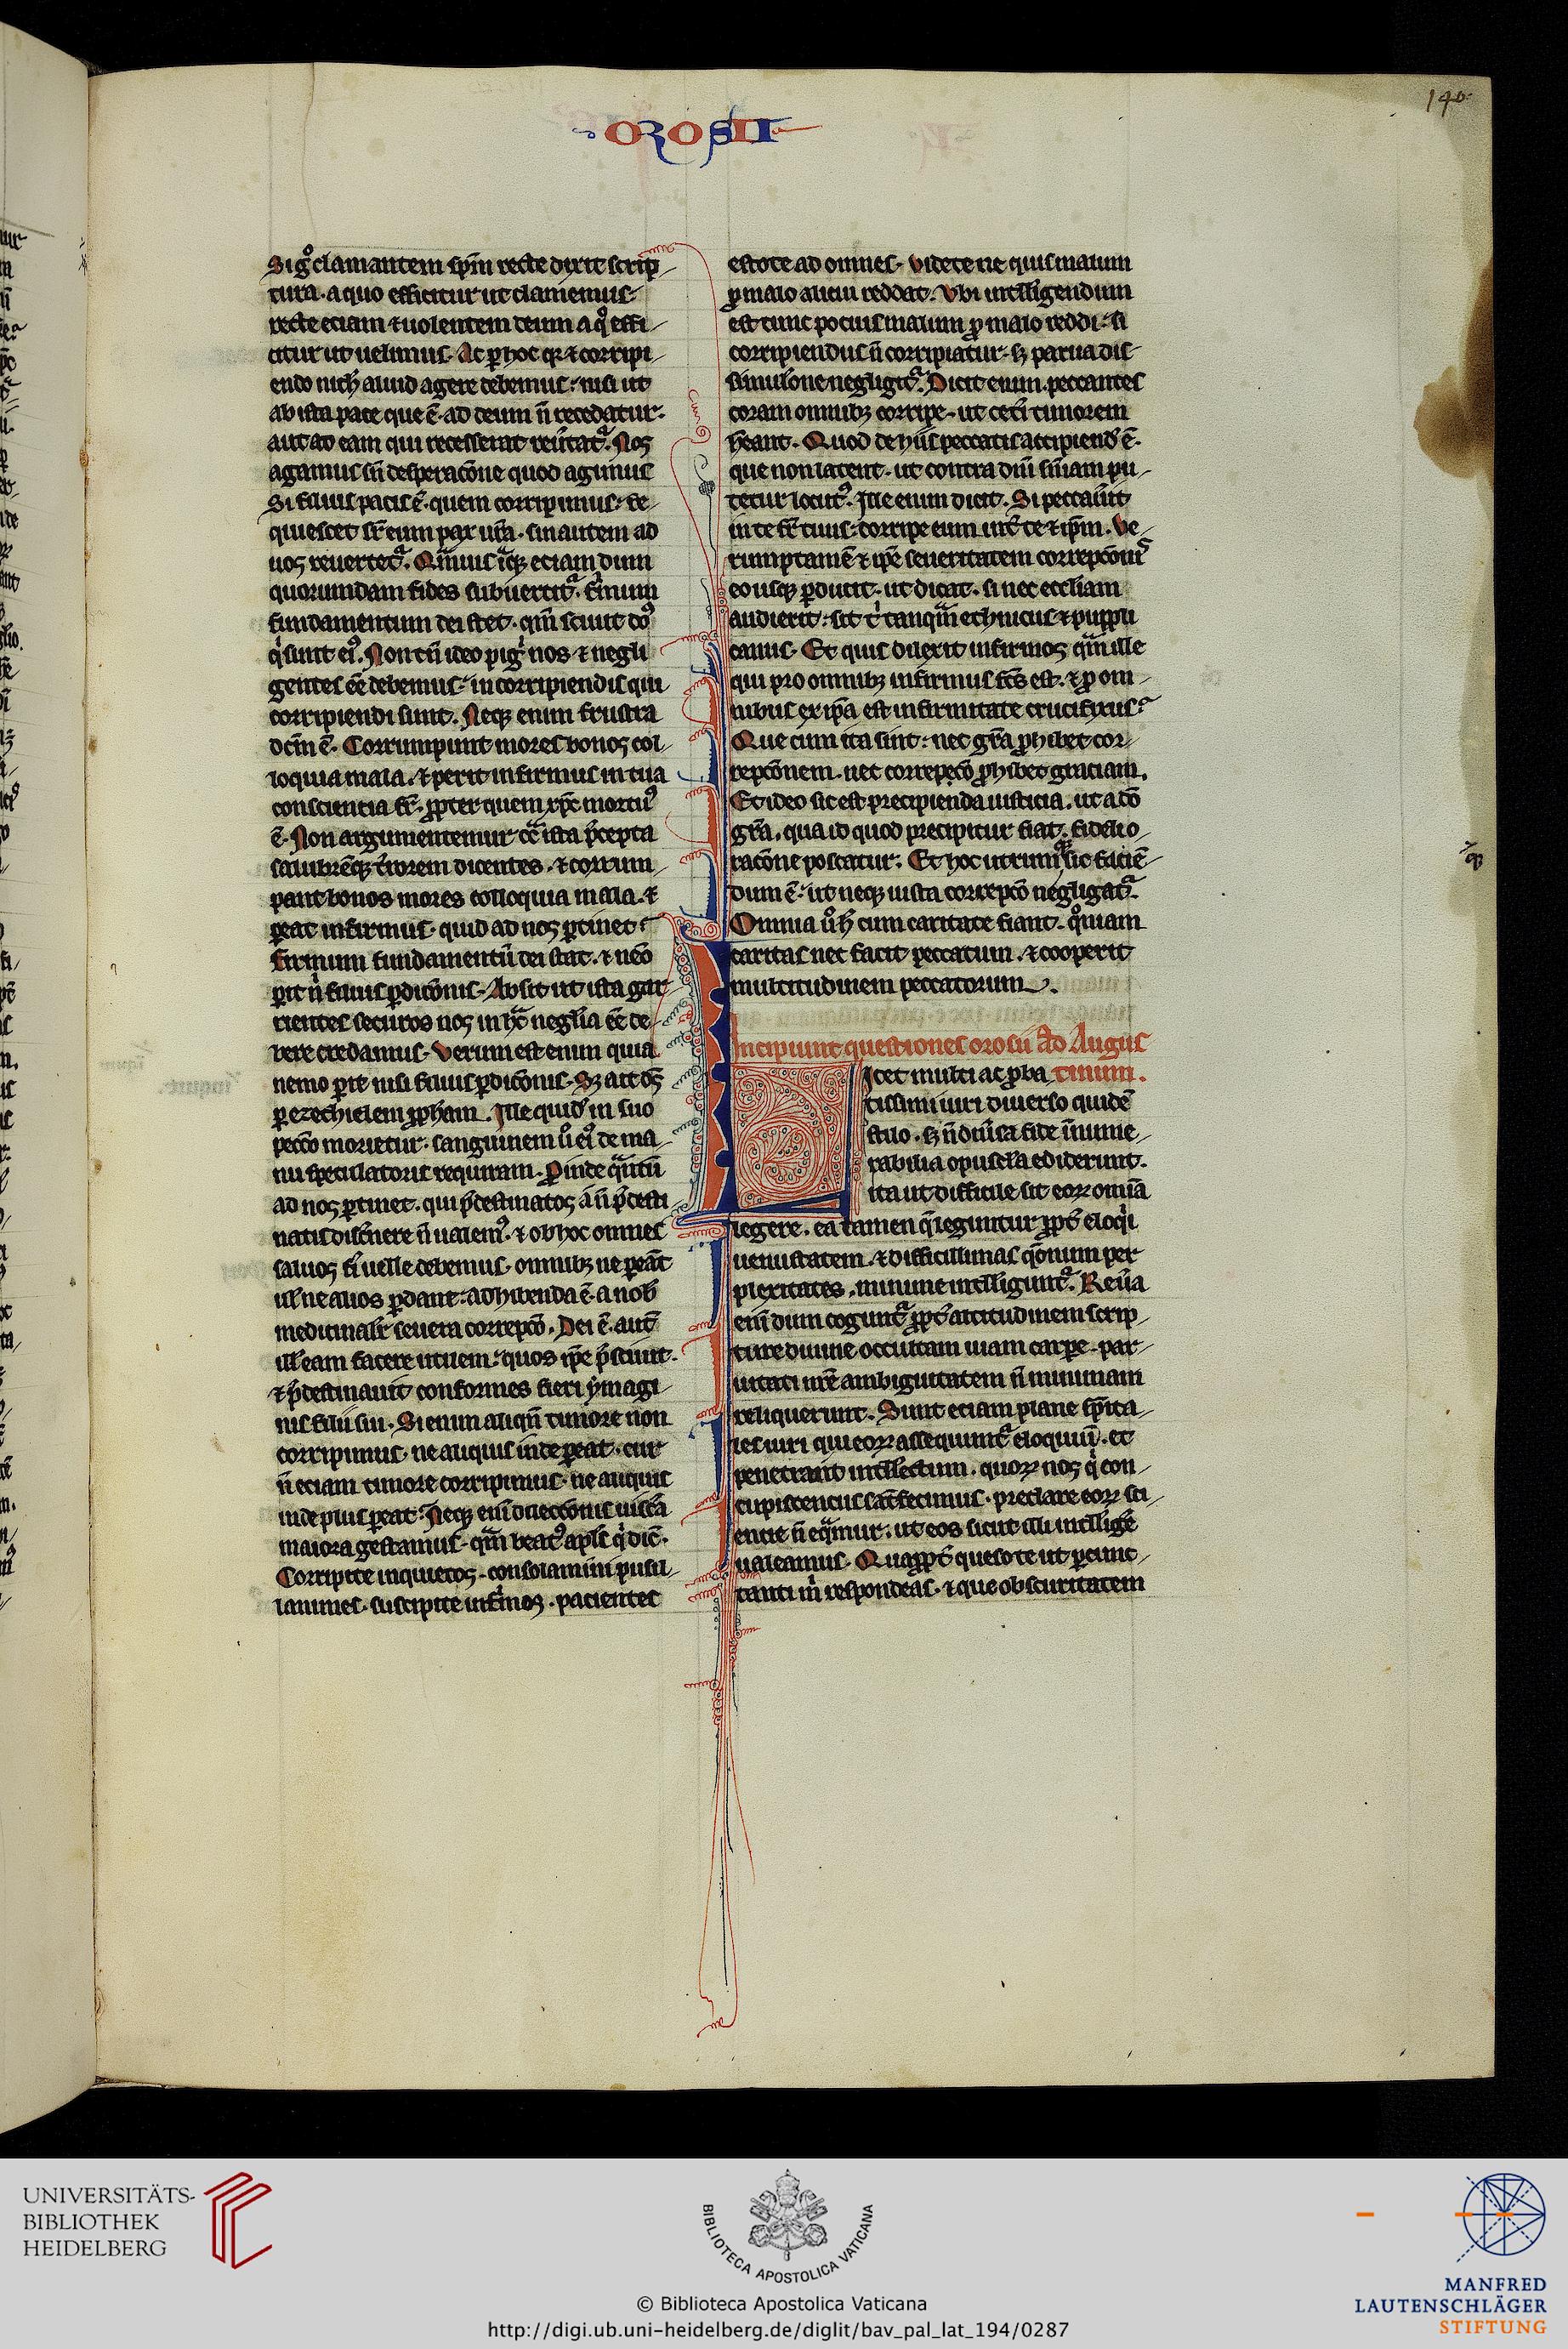 140
OROSII
Si gͦ clamantem spm̄ recte dixit scrip-
tura. a quo efficitur ut clamemus
recte eciam ⁊ uolentem deum a qͦ effi-
citur ut uelimus. Ac ꝑ hoc qꝛ ⁊ corripi-
endo nich̄ aliud agere debemus: nisi ut
ab ista pace que ē. ad deum n̄ recedatur.
aut ad eam qui recesserat reūtatᷓ. Nos
agamus sn̄ desperacōne quod agimus
Si filius pacis ē. quem corripimus: re-
quiescet sr̄ eum pax ur̄a. sin autem ad
uos reuertetᷓ. Qᷓmuis itaꝗ eciam dum
quorumdam fides subuertitᷓ. firmum
fundamentum dei stet. qm̄ sciuit dōs
qͥ sunt eiꝰ. Non tn̄ ideo pigͥ nos ⁊ negli
gentes eē debemus: in corripiendis qui
corripiendi sunt. Neqꝫ enim frustra
dcm̄ ē. Corrumpunt mores bonos col-
loquia mala. ⁊ perit infirmus in tua
consciencia fr̄. ꝓpter quem xp̄c mortuꝰ
ē. Non argumentemur cōᷓ ista p̄cepta
salubrēqꝫ t̄rorem dicentes. ⁊ corrum-
pant bonos mores colloquia mala. ⁊
ꝑeat infirmus. quid ad nos ꝑtinet?
Firmum fundamentū dei stat. ⁊ nēo
ꝑit nͥ filius ꝑdicōnis. Absit ut ista gar-
rientes securos nos in hᷓc negl̄ia eē de-
bere credamus. Verum est enim quia
nemo ꝑit nisi filius ꝑdicōnis. Sꝫ ait dꝰs
ꝑ ezechielem ꝓpham. Ille quid̄ in suo
pecco morietur. sanguinem ū eiꝰ de ma-
nu speculatoris requiram. Proinde qᷓntū
ad nos ꝑtinet. qui p̄destinatos a n̄ p̄desti
natis disc̄nere n̄ ualemꝰ. ⁊ ob hoc omnes
saluos fi̇ uelle debemus. omnibꝫ ne ꝑeāt
ul̄ ne alios ꝑdant: adhibenda ē. a nob̄
medicinalr̄ seuera correpcō. Dei ē. aut̄
ill̄ eam facere utilem: quos ip̄e p̄sciuit.
⁊ p̄destinauit conformes fieri ymagi-
nis filii sui. Si enim aliqn̄ timore non
corripimus. ne aliquis inde ꝑeat. cur
n̄ eciam timore corripimus. ne aliquis
inde plus ꝑeat? Neqꝫ enī dilectionis uisc̄a
maiora gestamus. qᷓm beatꝰ apl̄s qͥ dic̄.
Corripite inquietos. consolamini pusil-
lanimes. suscipite infirmos. pacientes
estote ad omnes. Videte ne quis malum
ꝓ malo alicui reddat. Vbi intelligendum
est tunc pocius malum ꝓ malo reddi: si
corripiendus n̄ corripiatur. sꝫ praua dis-
simul̄one negligitᷓ. Dicit enim. peccantes
coram omnibꝫ corripe. ut cet̄i timorem
h̄eant. Quod de hiis peccatis accipiend̄ ē.
que non latent. ut contra dn̄i sn̄iam pu-
tetur locutꝰ. Ille enim dicit. Si peccau̇it
in te fr̄ tuus: corripe eum int̄ te ⁊ ip̄m. Ve-
rumptamē ⁊ ip̄e seueritatem correpcōnis
eo usqꝫ ꝑducit. ut dicat. si nec eccl̄iam
audierit: sit tͥ tanqᷓm ethnicus ⁊ puppli
canus. Et quis dilexit infirmos qᷓm ille
qui pro omnibꝫ infirmus fcs̄ est. ⁊ ꝓ om-
nibus ex ip̄a est infirmitate crucifixus?
Que cum ita sint: nec gr̄a ꝓhibet cor-
repcōnem. nec correpcō ꝓhibet graciam.
Et ideo sic est precipienda iusticia. ut a dō
gr̄a. qua id quod precipitur fiat. fideli o-
racōne poscatur. Et hoc utrumqꝫ sic faciē-
dum ē. ut neqꝫ iusta correpcō negligatᷓ.
Omnia ū h̄ cum caritate fiant. qͦniam
caritas nec facit peccatum. ⁊ cooperit
multitudinem peccatorum.
Incipiunt questiones orosii ad Augus
tinum.
Licet multi ac ꝓba
tissimi uiri diuerso quidē
stilo. sꝫ n̄ diūsa fide īnume-
rabilia opuscl̄a ediderunt.
ita ut difficile sit eoꝝ omīa
legere. ea tamen q̄ leguntur ꝓpt̄ eloqͥi
uenustatem. ⁊ difficillimas qōnum per
plexitates. minime intelliguntᷓ. Reūa
enī dum coguntᷓ ꝓpt̄ altitudinem scrip-
ture diuine occultam uiam carpe. par-
uitati nr̄e ambiguitatem n̄ minimam
reliquerunt. Sunt eciam plane spīta-
les uiri qui eoꝝ assequuntᷓ eloquiū. et
penetrant intellectum. quoꝝ nos qͥ con-
cupiscenciis satisfecimus. preclare eoꝝ sci-
encie n̄ eqᷓmur. ut eos sicut illi intellige̅
ualeamus. Quaꝓpt̄ queso te ut ꝑcunc-
tanti mͥ respondeas. ⁊ que obscuritatem
UNIVERSITÄTS-
BIBLIOTHEK
HEIDELBERG
BIBLIOTECA APOSTOLICA VATICANA
© Biblioteca Apostolica Vaticana
http://digi.ub.uni-heidelberg.de/diglit/bav_pal_lat_194/0287
MANFRED
LAUTENSCHLÄGER
STIFTUNG